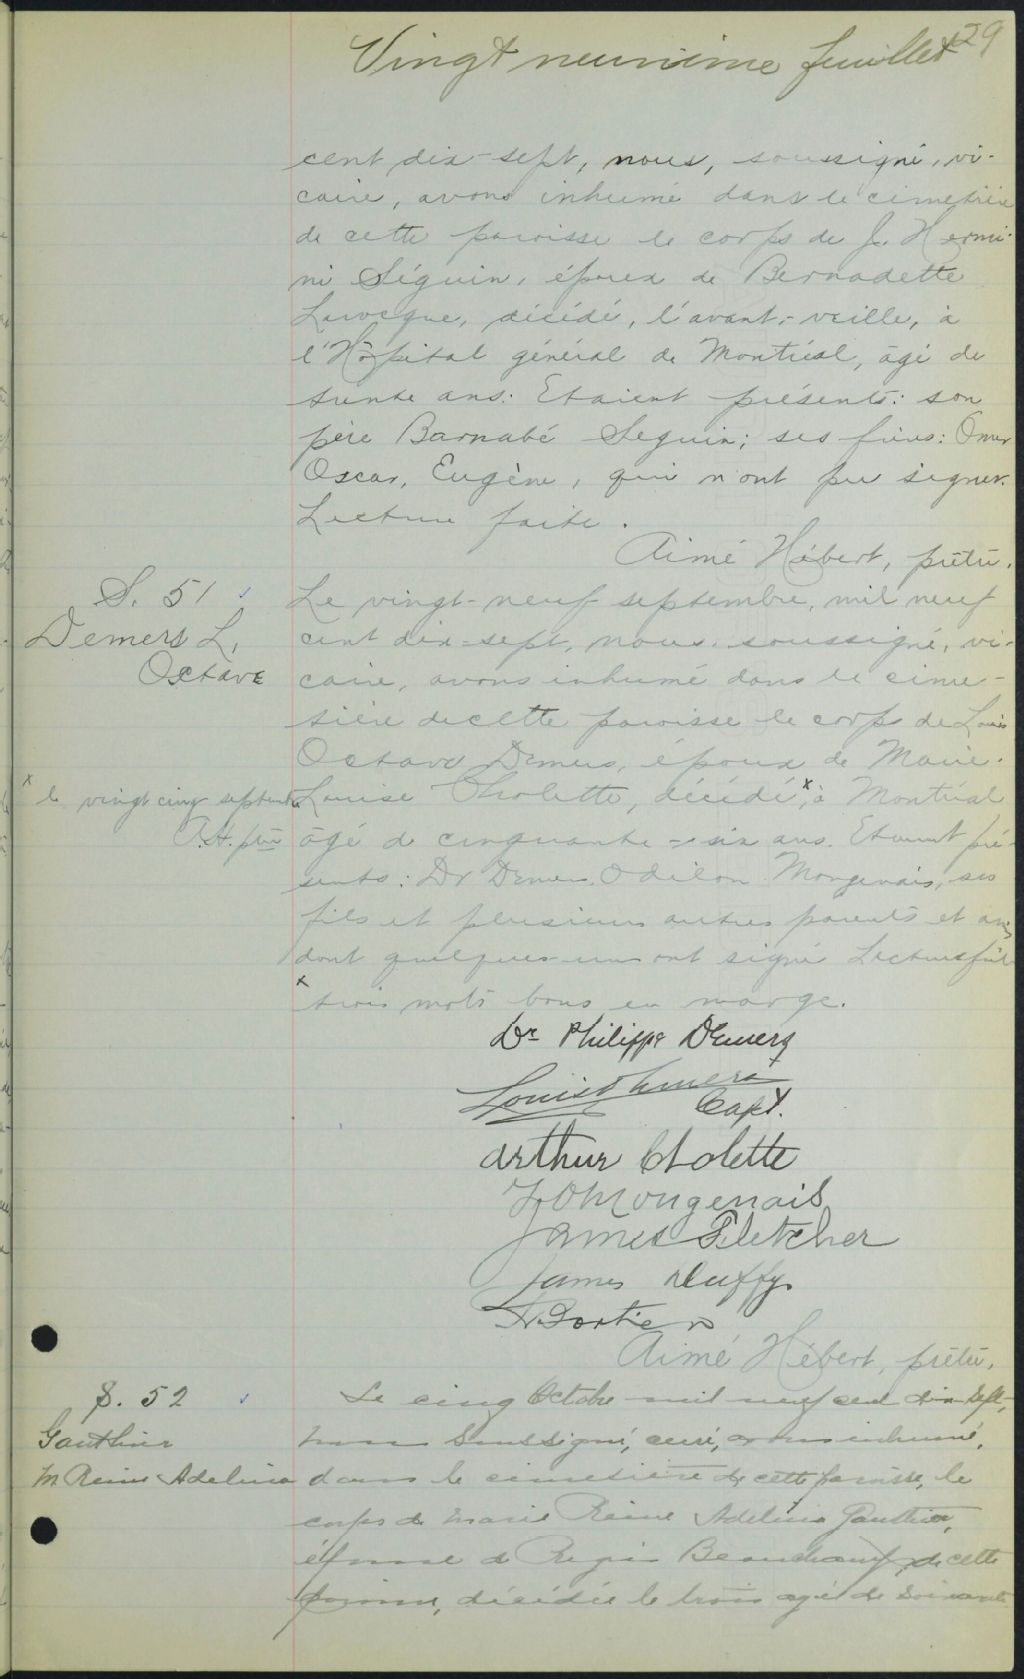 Vingt neuvième feuillet 29
cent dix-sept, nous, soussigné, vi-
caire, avons inhumé dans le cimetière
de cette paroisse le corps de J. Hermé-
ni Séguin, époux de Bernadette
Larocque, décédé, l'avant-veille, à
l'Hôpital général de Montréal, âgé de
trente ans. Etaient présents: son
père Barnabé Seguin; ses frères: Omer
Oscar, Eugène, qui n'ont pu signer.
Lecture faite.
Aimé Hébert, prêtre.
S. 51
Demers L.
Octave
Le vingt-neuf septembre, mil neuf
cent dix-sept, nous soussigné, vi-
caire, avons inhumé dans le cime-
tière de cette paroisse le corps de Louis
Octave Demers, époux de Marie-
Louise Cholette, décédé, x à Montréal
x le vingt cinq septembre
A.H. ptre
âgé de cinquante-six ans. Etaient pré-
sents: Dr Demers, Odilon Mongenais, ses
fils et plusieurs autres parents et amis
dont quelques-uns ont signé Lecture faite
x trois mots bons en marge.
Dr Philippe Demers
Louis Demers
Capt.
Arthur Cholette
J O Mongenais
James Fletcher
James Duffy
Aimé Hébert, prêtre.
S. 52
Gauthier
M Reine Adelina
Le cinq Octobre mil neuf cent dix sept,
nous soussigné, curé, avons inhumé,
dans le cimetière de cette paroisse, le
corps de Marie Reine Adelina Gauthier,
épouse de Regis Beauchamp, de cette
paroisse, décédée le trois agée de soixante